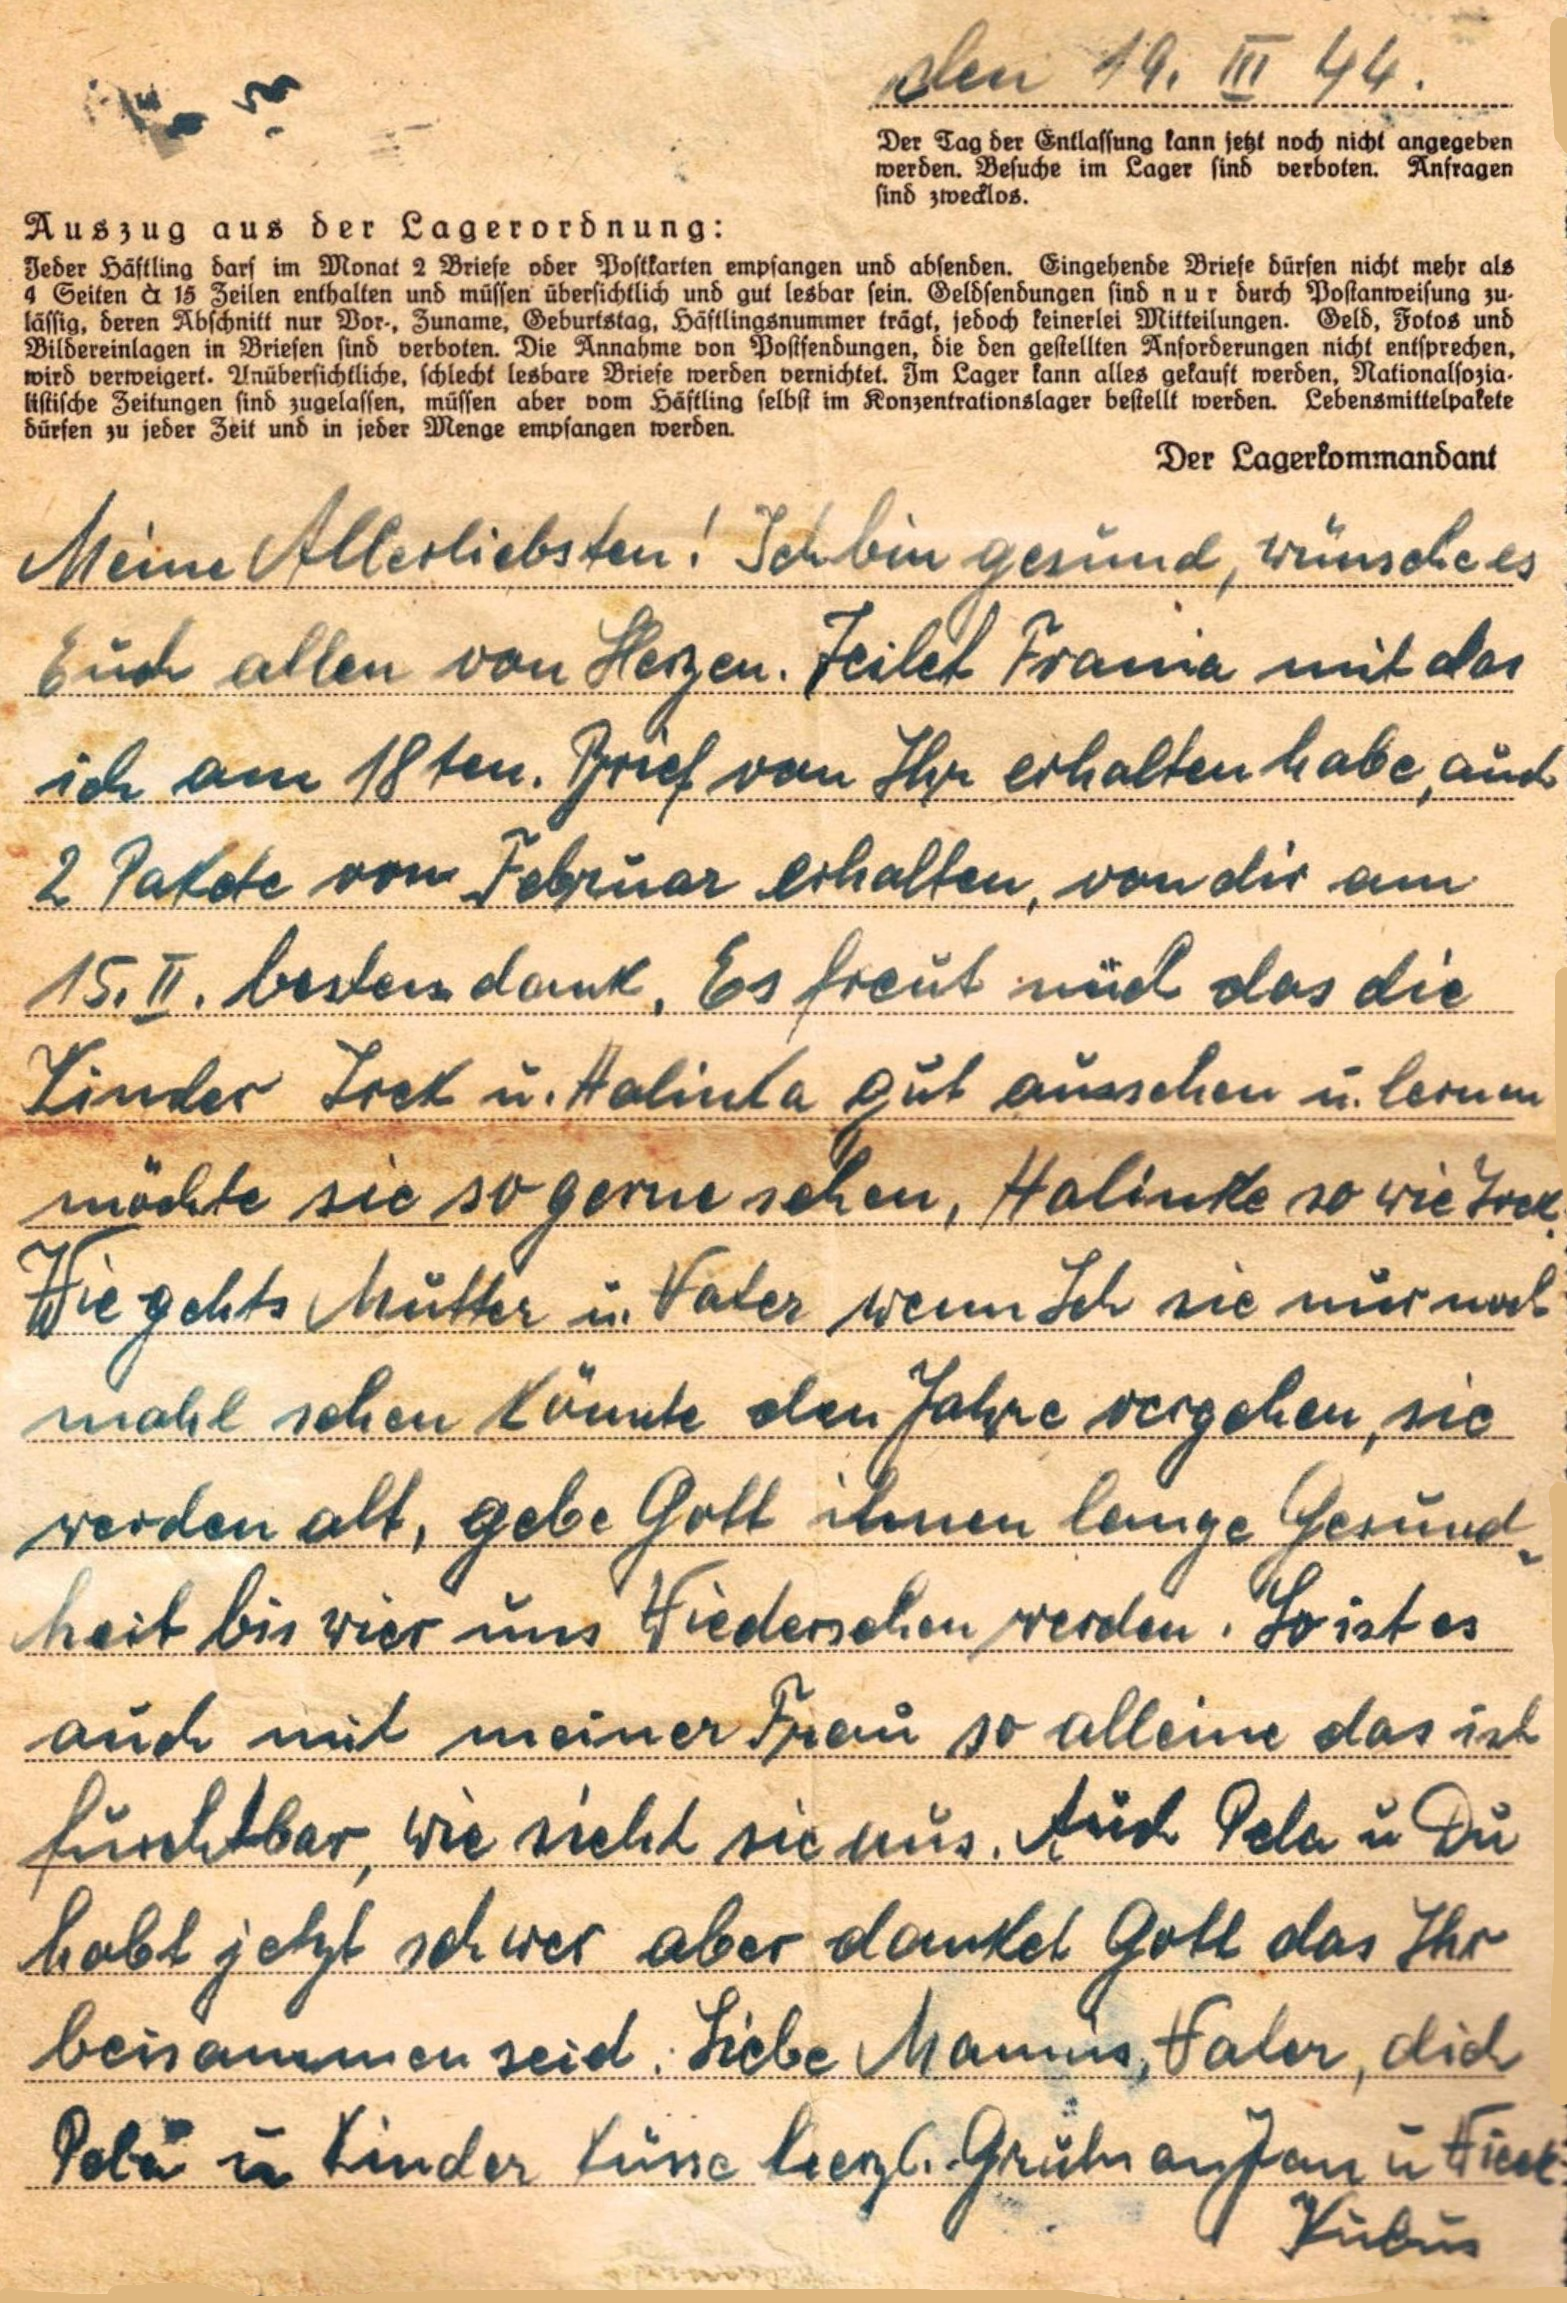 den 19. III 44.
Der Tag der Entlassung kann jetzt noch nicht angegeben
werden. Besuche im Lager sind verboten. Anfragen
sind zwecklos.
Auszug aus der Lagerordnung:
Jeder Häftling darf im Monat 2 Briefe oder Postkarten empfangen und absenden. Eingehende Briefe dürfen nicht mehr als
4 Seiten à 15 Zeilen enthalten und müssen übersichtlich und gut lesbar sein. Geldsendungen sind nur durch Postanweisung zu-
lässig, deren Abschnitt nur Vor-, Zuname, Geburtstag, Häftlingsnummer trägt, jedoch keinerlei Mitteilungen. Geld, Fotos und
Bildereinlagen in Briefen sind verboten. Die Annahme von Postsendungen, die den gestellten Anforderungen nicht entsprechen,
wird verweigert. Unübersichtliche, schlecht lesbare Briefe werden vernichtet. Im Lager kann alles gekauft werden, Nationalsozia-
listische Zeitungen sind zugelassen, müssen aber vom Häftling selbst im Konzentrationslager bestellt werden. Lebensmittelpakete
dürfen zu jeder Zeit und in jeder Menge empfangen werden.
Der Lagerkommandant
Meine Allerliebsten! Ich bin gesund, wünsche es
Euch allen von Herzen. Teilet Frania mit das
ich am 18ten. Brief von Ihr erhalten habe, auch
2 Pakete vom Februar erhalten, von dir am
15. II. bestens dank. Es freut mich das die
Kinder Irek u. Halinka gut aussehen u. lernen
möchte sie so gerne sehen, Halinke so wie Irek.
Wie gehts Mutter u. Vater wenn Ich sie nur noch
mahl sehen könnte den Jahre vergehen, sie
werden alt, gebe Gott ihnen lange Gesund-
heit bis wier uns Wiedersehen werden. So ist es
auch mit meiner Frau so alleine das ist
furchtbar, wie sieht sie aus. Auch Pela u Du
habt jetzt schwer aber danket Gott das Ihr
beisammen seid. Liebe Mamus, Vater, dich
Pela u Kinder küsse herzl. Jan u
Kubus